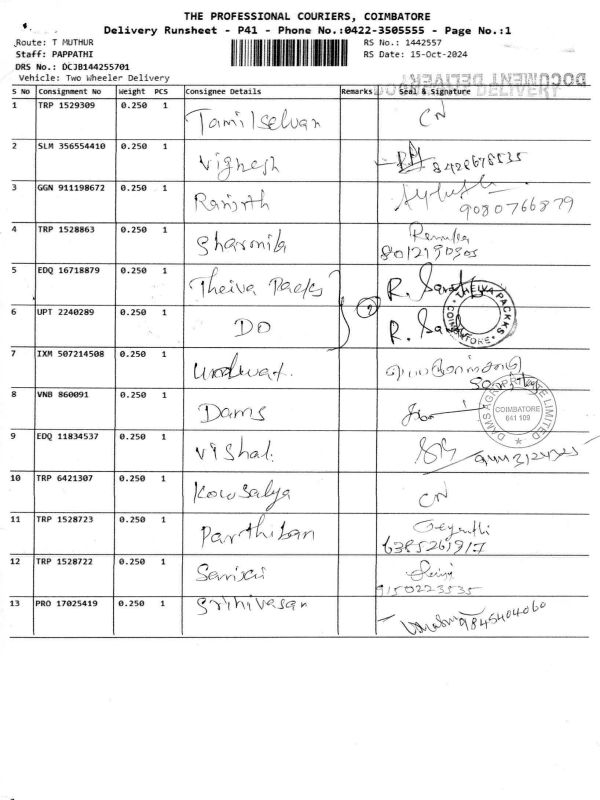 THE PROFESSIONAL COURIERS, COIMBATORE
Delivery Runsheet - P41 - Phone No.:0422-3505555 - Page No.:1
Route: T MUTHUR RS No.: 1442557
Staff: PAPPATHI RS Date: 15-Oct-2024
DRS No.: DCJB144255701
Vehicle: Two Wheeler Delivery
DOCUMENT DELIVERY
S No Consignment No Weight PCS Consignee Details Remarks Seal & Signature
1 TRP 1529309 0.250 1 Tamilselvan CN
2 SLM 356554410 0.250 1 Vighesh
3 GGN 911198672 0.250 1 Ranjith
9080766879
4 TRP 1528863 0.250 1 Sharmila Renuka
8012190905
5 EDQ 16718879 0.250 1 Theiva Packs R.
THEIVA PACKKS COIMBATORE
6 UPT 2240289 0.250 1 DO R.
7 IXM 507214508 0.250 1
8 VNB 860091 0.250 1 Dams
COIMBATORE
641 109
9 EDQ 11834537 0.250 1 Vishal.
10 TRP 6421307 0.250 1 Kowsalya CN
11 TRP 1528723 0.250 1 Parthiban
6385265917
12 TRP 1528722 0.250 1
9150223535
13 PRO 17025419 0.250 1 Srinivasan 9845404060